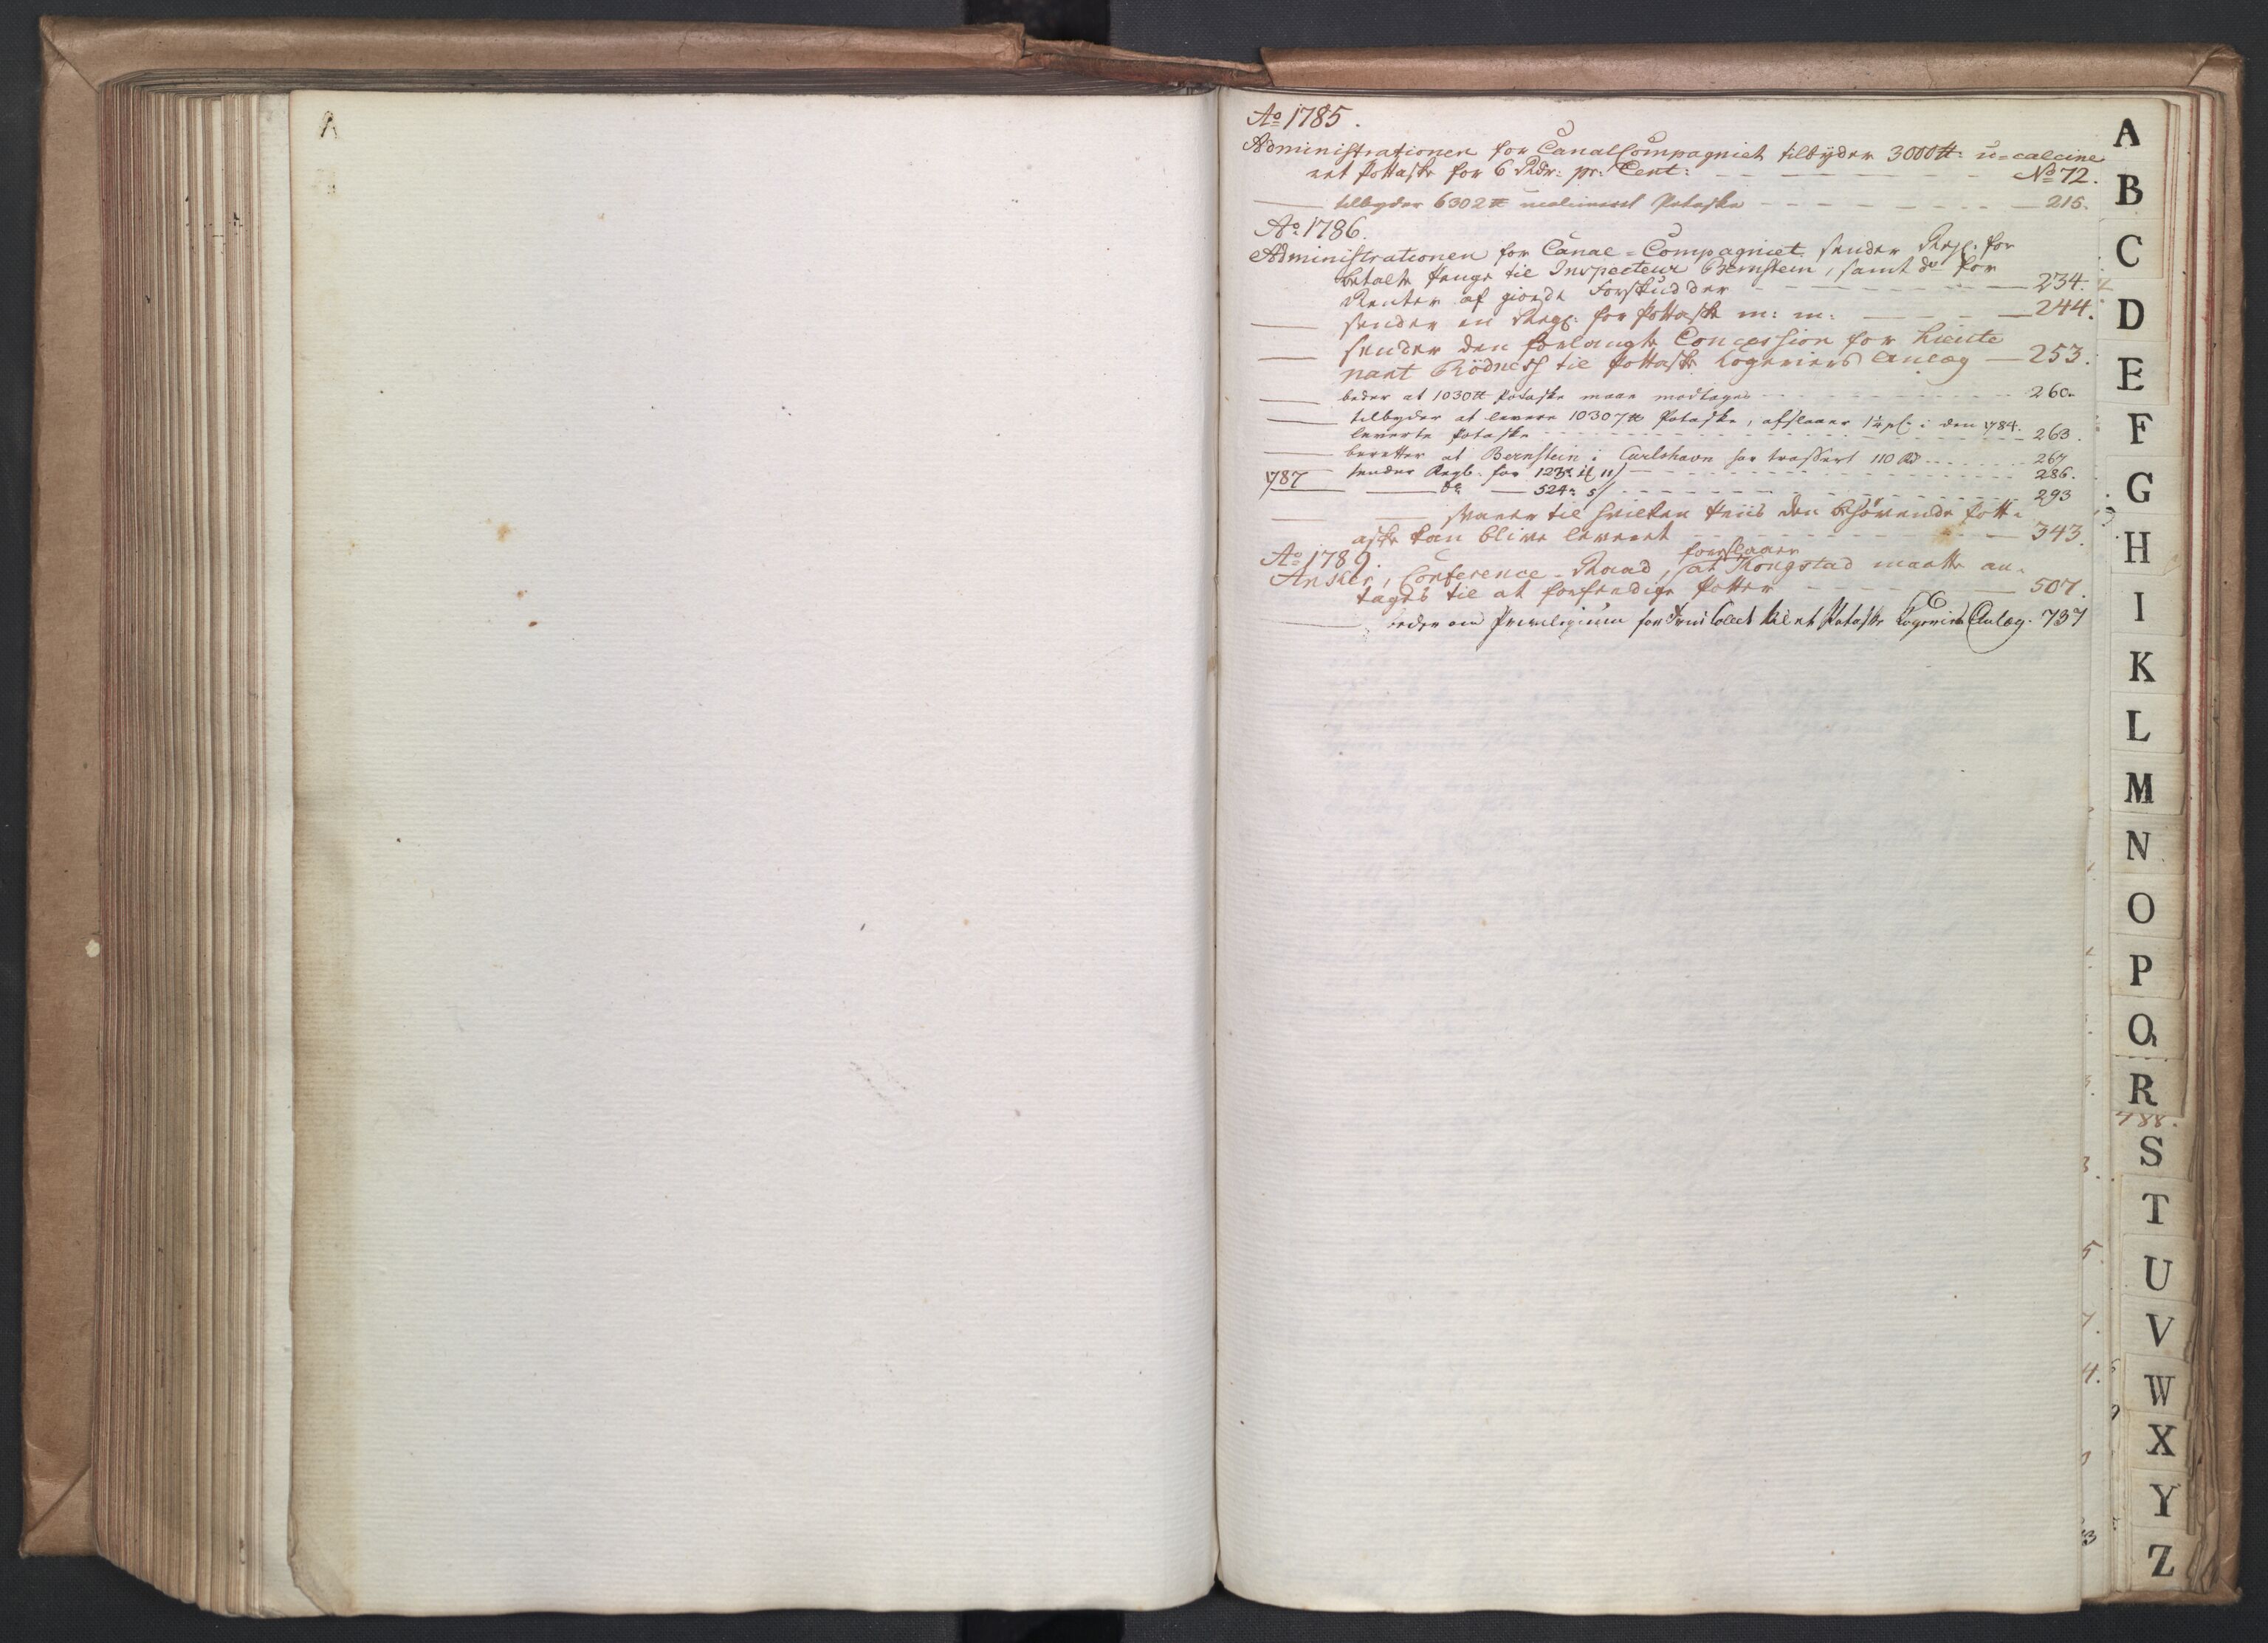 Ao 1785.
Administrationen for Canal Compagniet tilbyder 3000 ℔: u=calcine
ret Pottaske for 6 Rdr: pr: Cent: — No 72.
— tilbyder 6302 ℔ Potaske — 215.
Ao 1786.
Administrationen for Canal=Compagniet sender Regl: for
betalte Penge til Inspecteur Bernstein, samt do for
Renter af giorde Forskudder — 234.
— sender en Regl: for Pottaske m: m: — 244.
— sender den forlangte Concession for Lieute
nant Rödness til Pottaske Kogeriers Anlæg — 253.
— beder at 1030 ℔ Potaske maae modtages — 260.
— tilbyder at levere 10307 ℔ Potaske, afslaaer i den 1784.
leverte Potaske — 263.
— beretter at Bernstein i Carlshavn har trasseret 110 Rd — 267
1787 — sender Regb. for 123 — 286.
— — do — 524 5 — 293
— — svarer til hvilken Priis den behövende Pott=
aske kan blive leveret — 343.
Ao 1789.
Anker, Conference=Raad, forslaaer at Kongstad maatte an=
tages til at forfærdige Potter — 507.
— beder om Privilegium for til et Potaske Kogeries Anlæg. 737
A
B
C
D
E
F
G
H
I
K
L
M
N
O
P
Q
R
788.
S
T
U
V
W
X
Y
Z